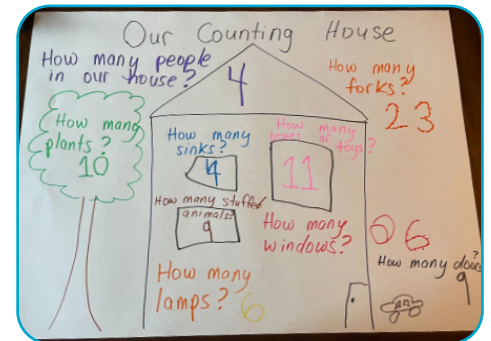 Our Counting House
How many people
in our house?
4
How many
forks?
23
How many
plants?
10
How many
sinks?
4
How many
boxes of toys?
11
How many stuffed
animals?
9
How many
windows?
06
How many doors?
9
How many
lamps?
6